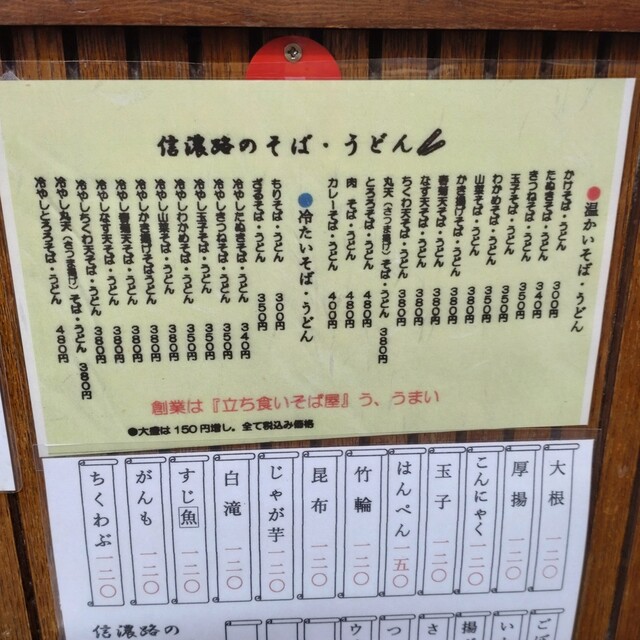 信濃路のそば・うどん
●温かいそば・うどん
かけそば・うどん 300円
たぬきそば・うどん 340円
きつねそば・うどん 350円
玉子そば・うどん 350円
わかめそば・うどん 350円
山菜そば・うどん 380円
かき揚げそば・うどん 380円
春菊天そば・うどん 380円
なす天そば・うどん 380円
ちくわ天そば・うどん 380円
丸天（さつま揚げ）そば・うどん 380円
とろろそば・うどん 480円
肉 そば・うどん 480円
カレーそば・うどん 400円
●冷たいそば・うどん
もりそば・うどん 300円
ざるそば・うどん 350円
冷やしたぬきそば・うどん 340円
冷やしきつねそば・うどん 350円
冷やし玉子そば・うどん 350円
冷やしわかめそば・うどん 350円
冷やし山菜そば・うどん 380円
冷やしかき揚げそばうどん 380円
冷やし春菊天そば・うどん 380円
冷やしなす天そば・うどん 380円
冷やしちくわ天そば・うどん 380円
冷やし丸天（さつま揚げ）そば・うどん 380円
冷やしとろろそば・うどん 480円
創業は『立ち食いそば屋』う、うまい
●大盛は150円増し。全て税込み価格
大根 一二〇
厚揚 一二〇
こんにゃく 一二〇
玉子 一二〇
はんぺん 一五〇
竹輪 一二〇
昆布 一二〇
じゃが芋 一二〇
白滝 一二〇
すじ魚 一二〇
がんも 一二〇
ちくわぶ 一二〇
ご
い
揚
さ
つ
ウ
信濃路の